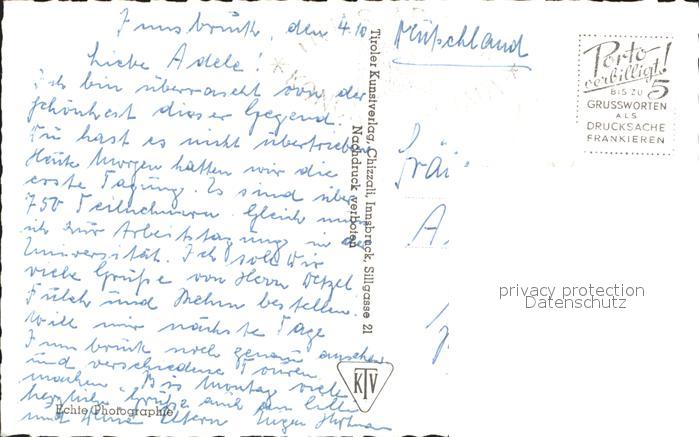 Innsbruck, den 4.10
Liebe Adele!
Ich bin überrascht von der
Schönheit dieser Gegend.
Du hast es nicht übertrieben
Heute Morgen hatten wir die
erste Tagung. Es sind über
750 Teilnehmern. Gleich muß
ich zur Arbeitstagung in der
Universität. Ich soll Dir
viele Grüße von Herrn Wetzel
und bestellen.
Will mir nächste Tage
Innsbruck noch genau ansehen
und verschiedene Touren
machen. Bis Montag viele
herzliche Grüße auch an
und deine Eltern Eugen
Echte Photographie
Tiroler Kunstverlag, Chizzali, Innsbruck, Sillgasse 21
Nachdruck verboten
KTV
Deutschland
Porto
verbilligt!
BIS ZU 5
GRUSSWORTEN
ALS
DRUCKSACHE
FRANKIEREN
Fräu
A.
privacy protection
Datenschutz